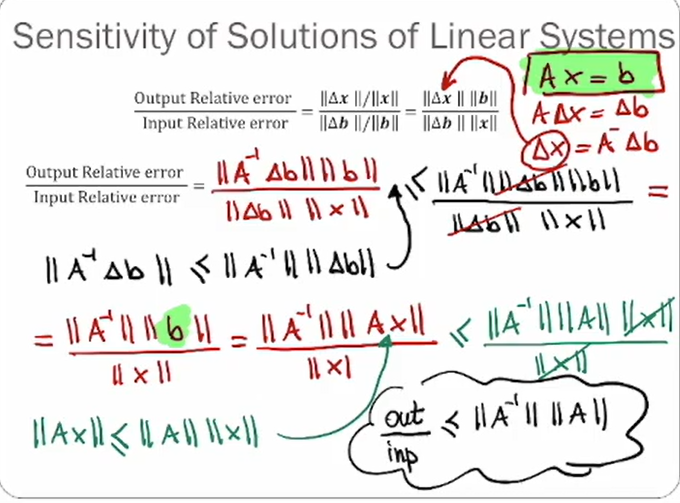 Sensitivity of Solutions of Linear Systems
Ax = b
Output Relative error / Input Relative error = ||Δx ||/||x|| / ||Δb ||/||b|| = ||Δx || ||b|| / ||Δb || ||x||
A Δx = Δb
Δx = A⁻ Δb
Output Relative error / Input Relative error = ||A⁻¹ Δb|| ||b|| / ||Δb|| ||x|| ≤ ||A⁻¹|| ||Δb|| ||b|| / ||Δb|| ||x|| =
||A⁻¹ Δb|| ≤ ||A⁻¹|| ||Δb||
= ||A⁻¹|| ||b|| / ||x|| = ||A⁻¹|| ||Ax|| / ||x| ≤ ||A⁻¹|| ||A|| ||x|| / ||x||
||Ax|| ≤ ||A|| ||x||
out / inp ≤ ||A⁻¹|| ||A||